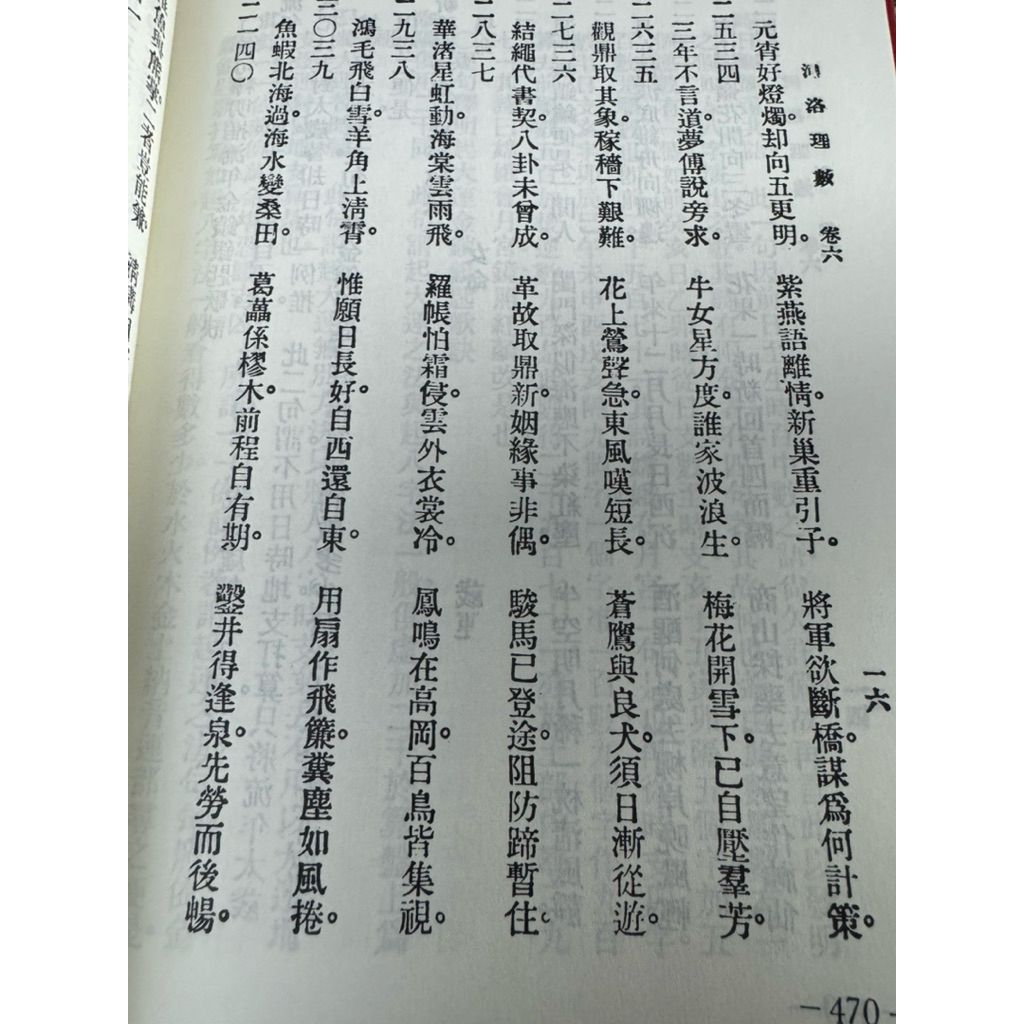 河洛理數 卷六 一六
元宵好燈燭。却向五更明。 紫燕語離情。新巢重引子。 將軍欲斷橋。謀爲何計策。
二五三四
三年不言道。夢傅說旁求。 牛女星方度。誰家波浪生。 梅花開雪下。已自壓羣芳。
二六三五
觀鼎取其象。稼穡下艱難。 花上鶯聲急。東風嘆短長。 蒼鷹與良犬。須日漸從遊。
二七三六
結繩代書契。八卦未曾成。 革故取鼎新。姻緣事非偶。 駿馬已登途。阻防蹄暫住。
二八三七
華渚星虹動。海棠雲雨飛。 羅帳怕霜侵。雲外衣裳冷。 鳳鳴在高岡。百鳥皆集視。
二九三八
鴻毛飛白雪。羊角上清霄。 惟願日長好。自西還自東。 用扇作飛簾。糞塵如風捲。
三〇三九
魚蝦北海過。海水變桑田。 葛藟係樛木。前程自有期。 鑿井得逢泉。先勞而後暢。
二一四〇
二者豈能兼。
-470-